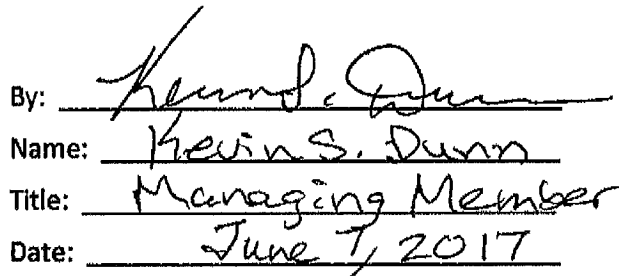 By: Kevin S. Dunn
Name: Kevin S. Dunn
Title: Managing Member
Date: June 7, 2017